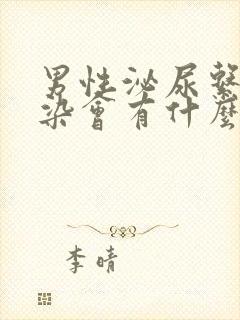 男性泌尿繫
染會有什麼
李晴